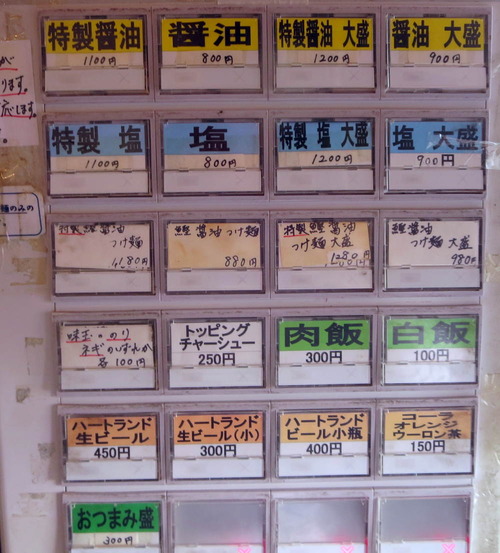 が
ります。
応じます。
す。
麺のみの
特製醤油
1100円
醤油
800円
特製醤油 大盛
1200円
醤油 大盛
900円
特製 塩
1100円
塩
800円
特製 塩 大盛
1200円
塩 大盛
900円
特製 鰹 醤油
つけ麺
1180円
鰹 醤油 つけ麺
880円
特製 鰹 醤油
つけ麺 大盛
1280円
鰹 醤油
つけ麺 大盛
980円
味玉・のり
ネギのいずれか
各100円
トッピング
チャーシュー
250円
肉飯
300円
白飯
100円
ハートランド
生ビール
450円
ハートランド
生ビール(小)
300円
ハートランド
ビール小瓶
400円
コーラ
オレンジ
ウーロン茶
150円
おつまみ盛
300円